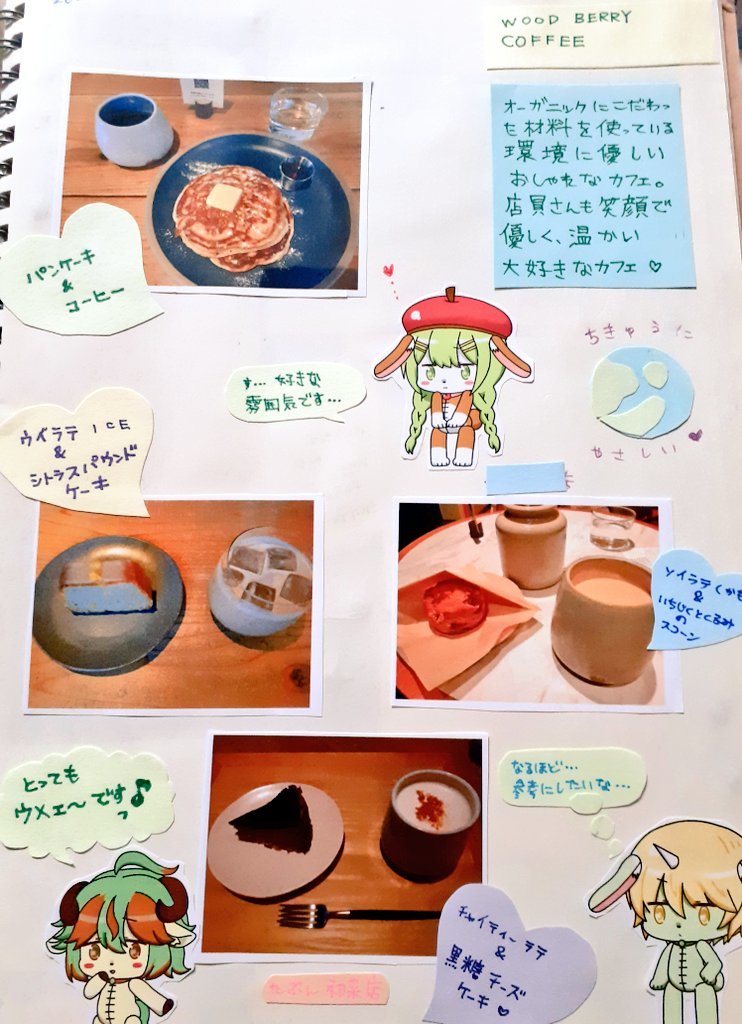 WOOD BERRY
COFFEE
オーガニックにこだわっ
た材料を使っている
環境に優しい
おしゃれなカフェ。
店員さんも笑顔で
優しく、温かい
大好きなカフェ♡
パンケーキ
&
コーヒー
す… 好きな
雰囲気です…
ちきゅうに
やさしい
ウイラテ ICE
&
シトラスパウンド
ケーキ
店
ソイラテ
&
いちじくとくるみ
の
スコーン
とっても
ウメェ〜です♪
なるほど…
参考にしたいな…
チャイティーラテ
&
黒糖チーズ
ケーキ♡
たぶん 初来店